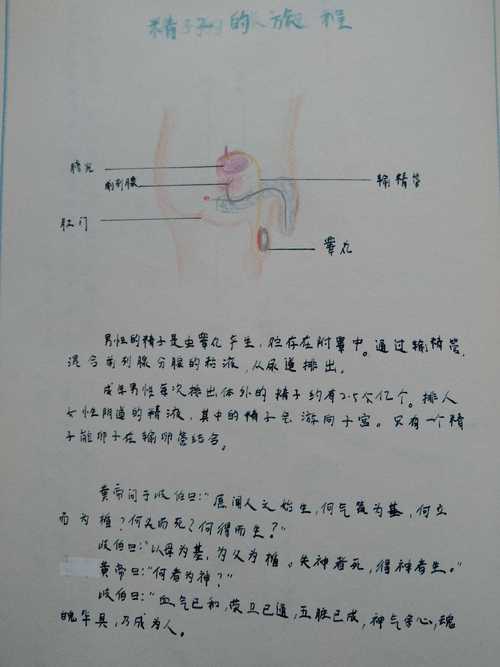 精子的旅程
膀胱
前列腺
输精管
肛门
睾丸
男性的精子是由睾丸产生，贮存在附睾中。通过输精管，
混合前列腺分腺的粘液，从尿道排出。
成年男性每次排出体外的精子约有2.5个亿个。排人
女性阴道的精液，其中的精子会游向子宫。只有一个精
子能卵子在输卵管结合。
黄帝问于岐伯曰："愿闻人之始生，何气筑为基，何立
而为楯？何失而死？何得而生？"
岐伯曰："以母为基，为父为楯。失神者死，得神者生。"
黄帝曰："何者为神？"
岐伯曰："血气已和，荣卫已通，五脏已成，神气舍心，魂
魄毕具，乃成为人。